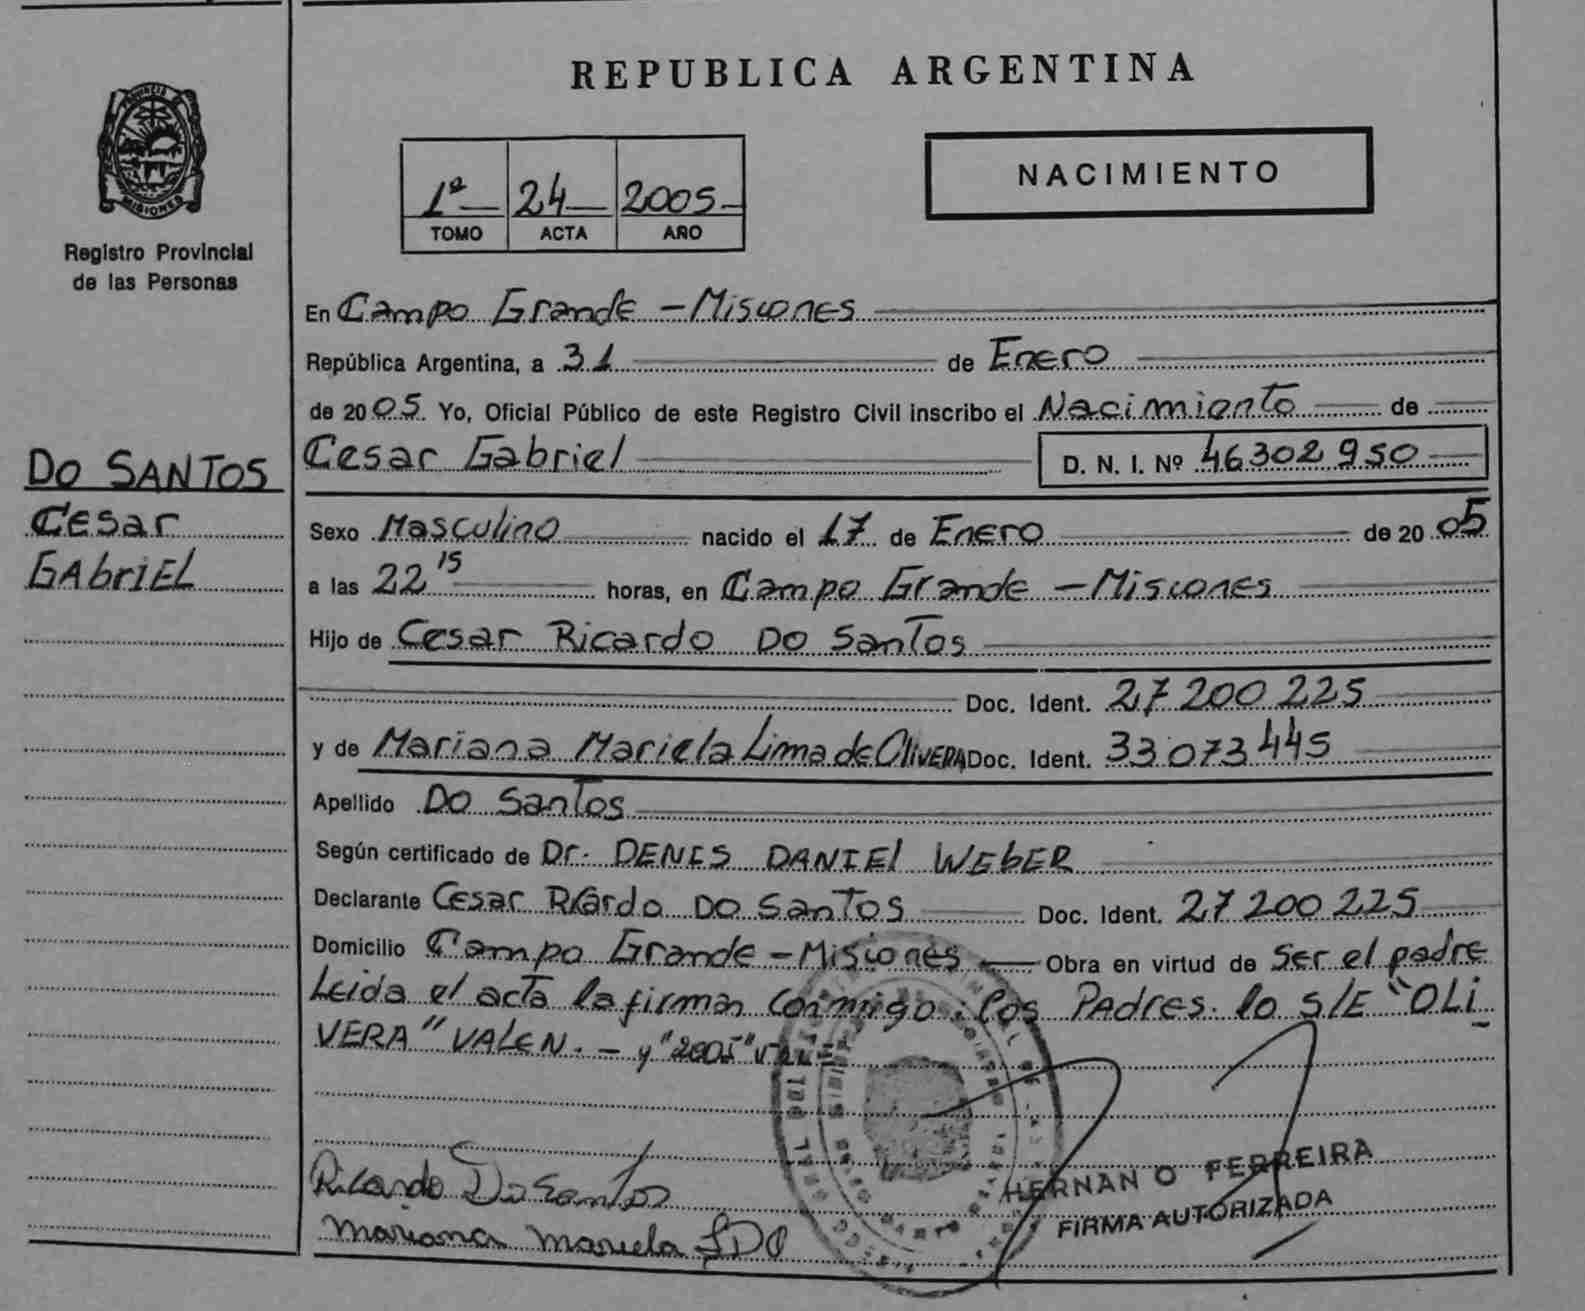 REPUBLICA ARGENTINA
PROVINCIA DE
MISIONES
Registro Provincial
de las Personas
1ª 24 2005
TOMO ACTA AÑO
NACIMIENTO
En Campo Grande - Misiones
República Argentina, a 31 de Enero
de 2005. Yo, Oficial Público de este Registro Civil inscribo el Nacimiento de
Cesar Gabriel D. N. I. Nº 46302950
DO SANTOS
Cesar
GAbriEL
Sexo Masculino nacido el 17 de Enero de 2005
a las 22 15 horas, en Campo Grande - Misiones
Hijo de Cesar Ricardo DO SanTos
Doc. Ident. 27 200 225
y de Mariana Mariela Lima de OliVERA Doc. Ident. 33 073 445
Apellido DO SanTos
Según certificado de Dr. DENES DANIEl WEbER
Declarante Cesar Ricardo DO SanTos Doc. Ident. 27 200 225
Domicilio Campo Grande - Misiones Obra en virtud de Ser el padre
Leida el acta la firman Conmigo: los PAdres. lo S/E "OLi
VERA" VALEN. - y "2005" vale
Ricardo Do Santos
Mariana Mariela LDO
HERNAN O FERREIRA
FIRMA AUTORIZADA